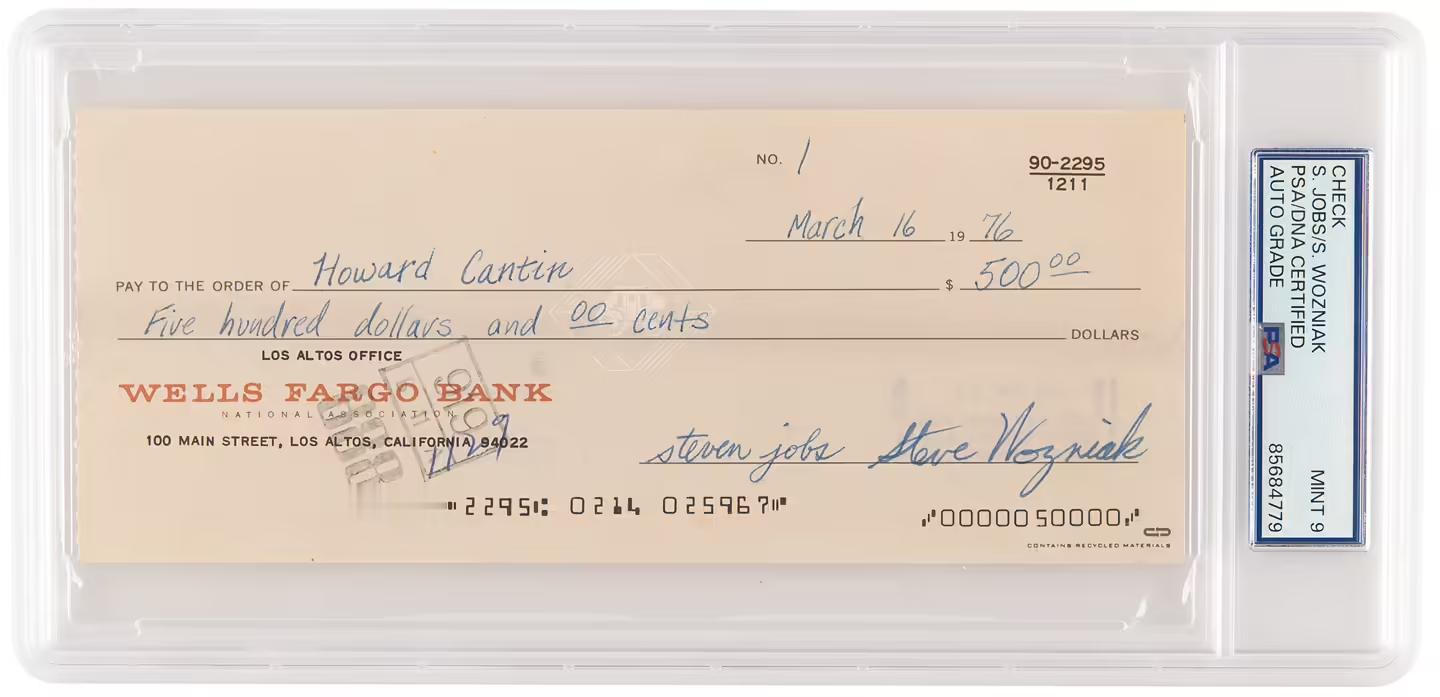 NO. 1
90-2295
1211
March 16 19 76
PAY TO THE ORDER OF Howard Cantin $ 500 00
Five hundred dollars and 00 cents DOLLARS
LOS ALTOS OFFICE
WELLS FARGO BANK
NATIONAL ASSOCIATION
100 MAIN STREET, LOS ALTOS, CALIFORNIA 94022
steven jobs Steve Wozniak
2295 0214 025967
0000050000
CONTAINS RECYCLED MATERIALS
CHECK
S. JOBS/S. WOZNIAK
PSA/DNA CERTIFIED
AUTO GRADE
PSA
MINT 9
85684779